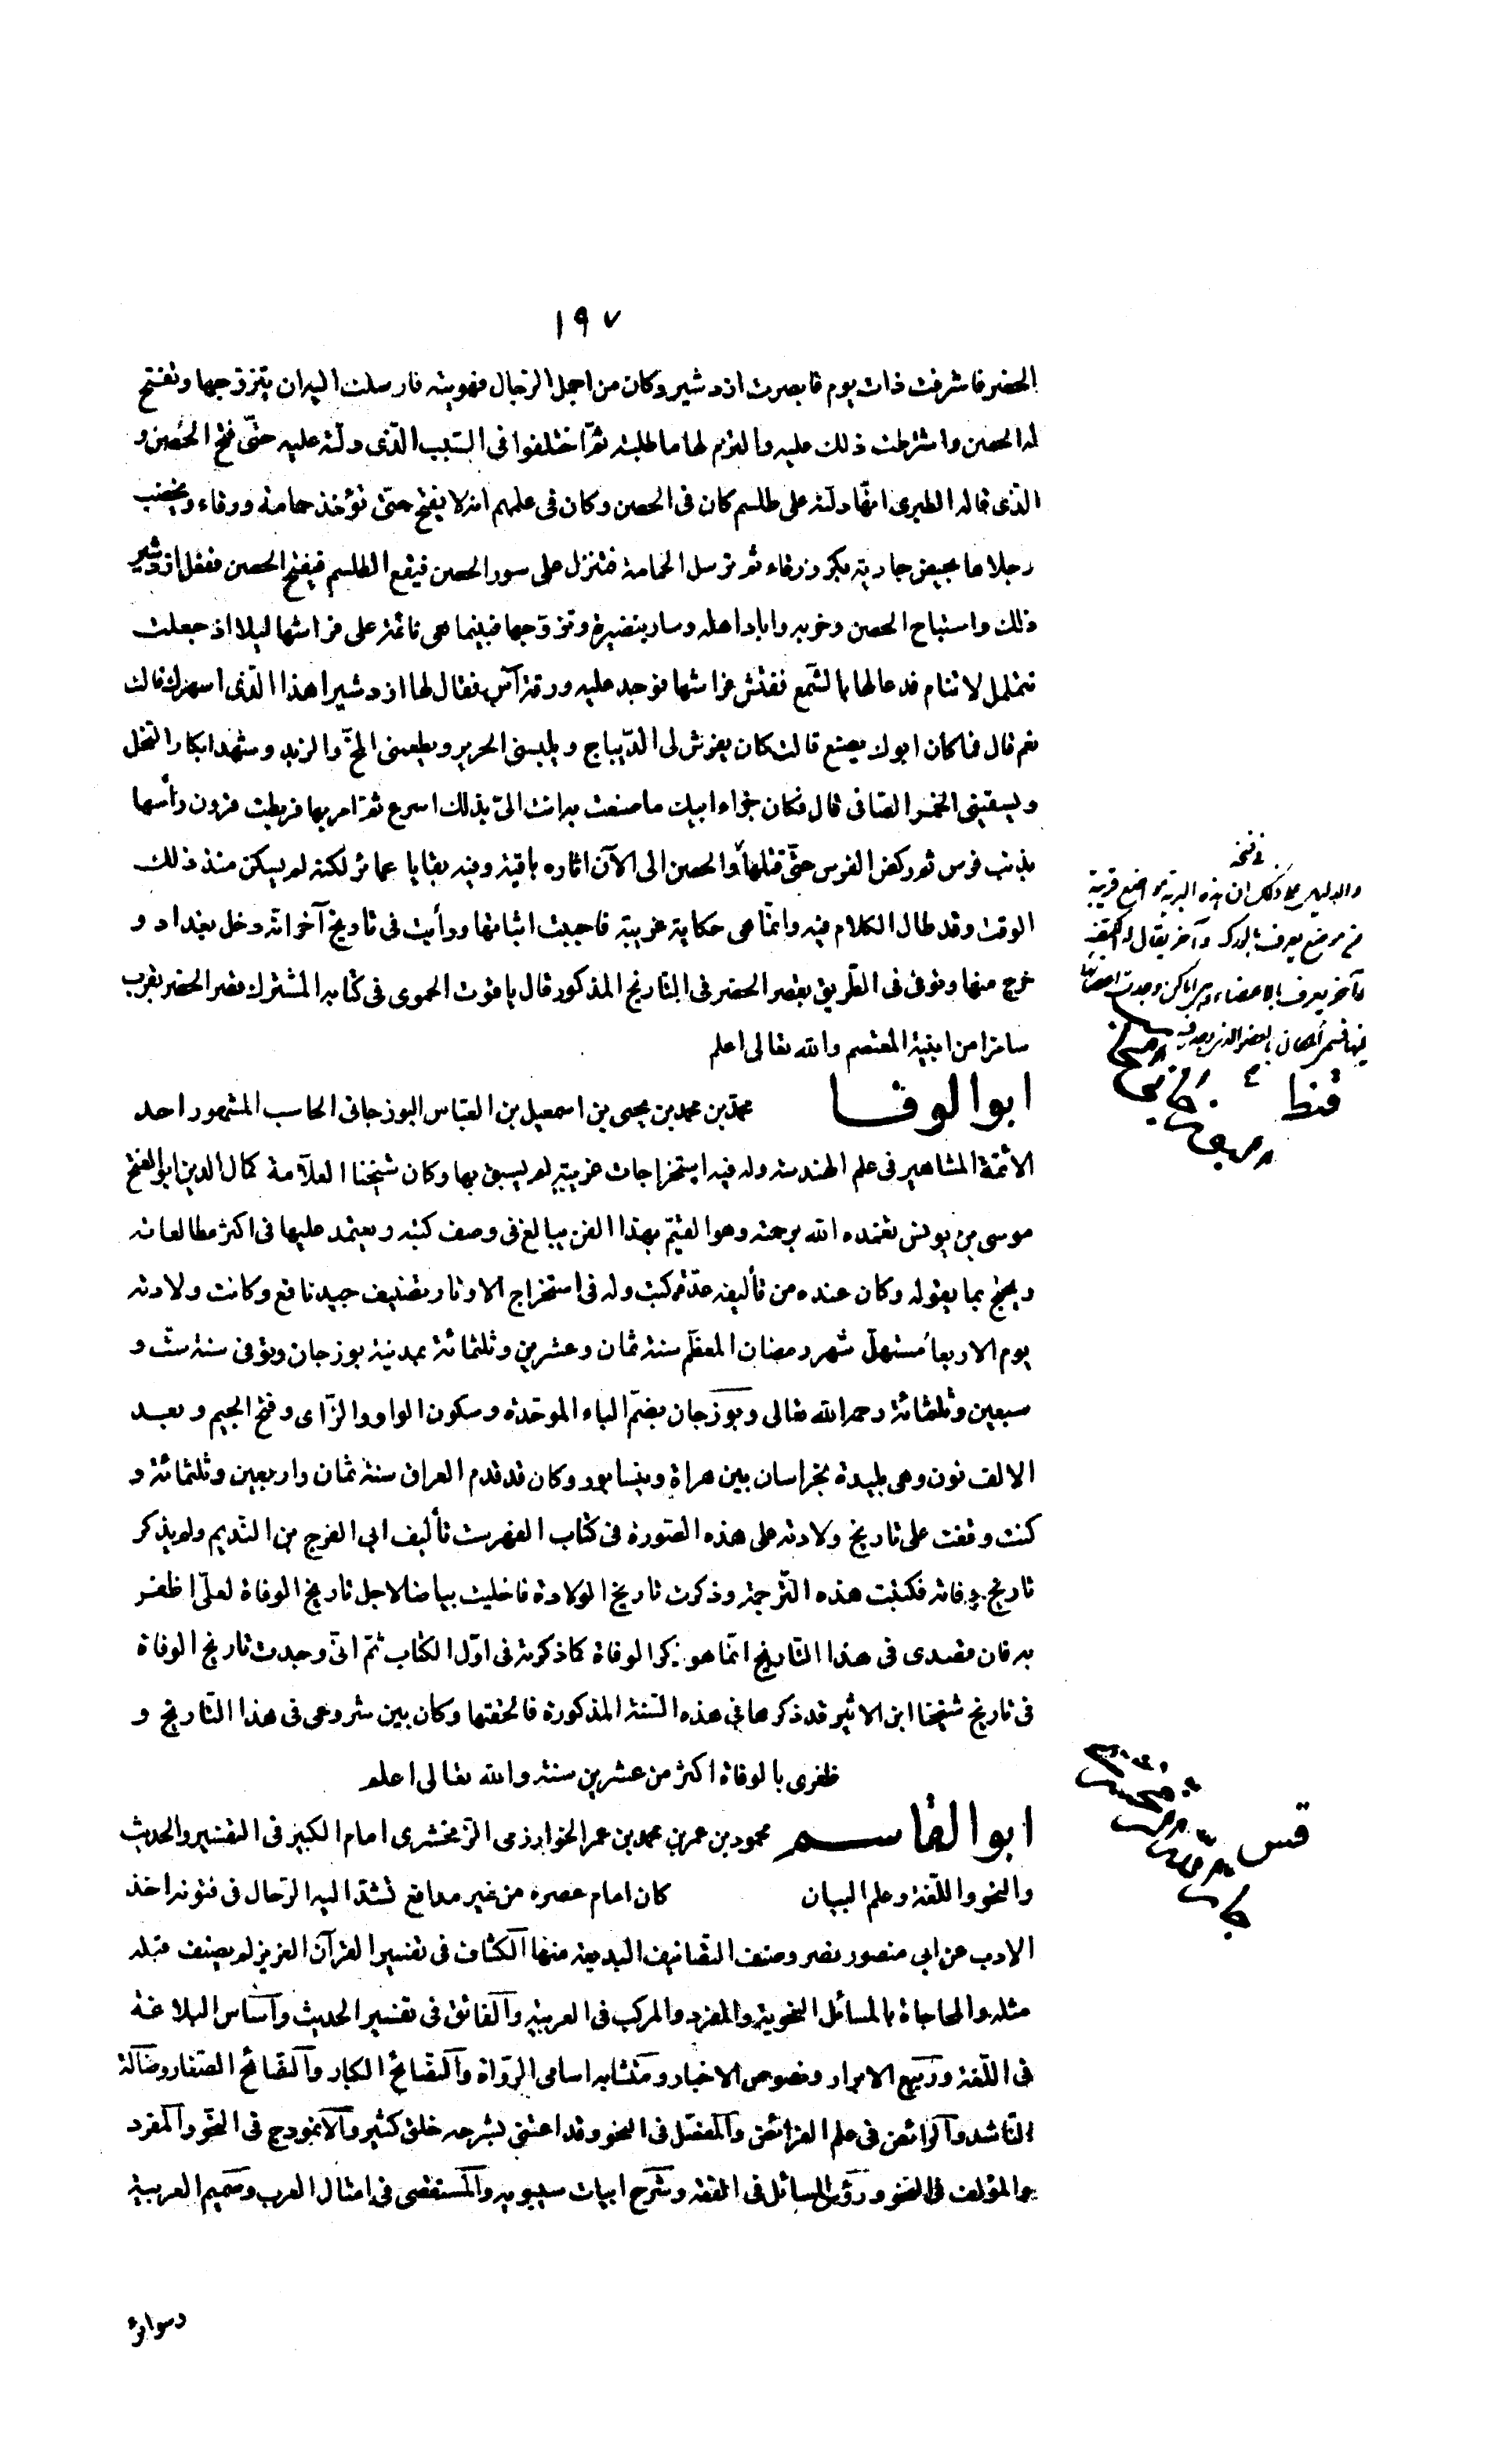 ١٩٧
الحضر فاشرفت ذات يوم فابصرت ازدشير وكان من اجمل الرّجال فهويته فارسلت اليه ان يتزوّجها وتفتح
له الحصن واشترطت ذلك عليه والتزم لها ما طلبته ثمّ اختلفوا فى السّبب الّذى دلّته عليه حتّى فتح الحصن و
الّذى قاله الطبرى انّها دلّته على طلسم كان فى الحصن وكان فى علمهم انه لا يفتح حتّى تؤخذ حمامة ورقاء ويخضب
رجلاها بحيض جارية بكر زرقاء ثمّ ترسل الحمامة فتنزل على سور الحصن فيقع الطلسم فيفتح الحصن ففعل ازدشير
ذلك واستباح الحصن وخربه واباد اهله وسار بنضيرة وتزوّجها فبينما هى نائمة على فراشها ليلا اذ جعلت
تتململ لا تنام فدعا لها بالشّمع ففتش فراشها فوجد عليه ورقة آس فقال لها ازدشير اهذا الّذى اسهرك قالت
نعم قال فما كان ابوك يصنع قالت كان يفرش لى الدّيباج ويلبسنى الحرير ويطعمنى المخّ والزبد وشهد ابكار النّحل
ويسقينى الخمر الصّافى قال فكان جزاء ابيك ما صنعت به انت الىّ بذلك اسرع ثمّ امر بها فربطت قرون رأسها
بذنب فرس ثم ركض الفرس حتّى قتلها والحصن الى الآن اثاره باقية وفيه بقايا عمائر لكنه لم يسكن منذ ذلك
الوقت وقد طال الكلام فيه وانّما هى حكاية غريبة فاحببت اثباتها ورأيت فى تاريخ آخر انّه دخل بغداد و
خرج منها وتوفى فى الطّريق بقصر الحضر فى التّاريخ المذكور قال ياقوت الحموى فى كتابه المشترك قصر الحضر بقرب
سامرا من ابنية المعتصم والله تعالى اعلم
فى نسخة
ابو الوفا محمّد بن محمد بن يحيى بن اسمعيل بن العبّاس البوزجانى الحاسب المشهور احد
قنط
الائمّة المشاهير فى علم الهندسة وله فيه استخراجات غريبة لم يسبق بها وكان شيخنا العلّامة كمال الدين ابو الفتح
موسى بن يونس تغمّده الله برحمته وهو القيّم بهذا الفن يبالغ فى وصف كتبه ويعتمد عليها فى اكثر مطالعاته
ويحتجّ بما يقوله وكان عنده من تأليفه عدّة كتب وله فى استخراج الاوتار تصنيف جيد نافع وكانت ولادته
يوم الاربعاء مستهلّ شهر رمضان المعظّم سنة ثمان وعشرين وثلثمائة بمدينة بوزجان وتوفى سنة ستّ و
سبعين وثلثمائة رحمه الله تعالى وبوزجان بضمّ الباء الموحّدة وسكون الواو والزّاى وفتح الجيم وبعد
الالف نون وهى بليدة بخراسان بين هراة ونيسابور وكان قد قدم العراق سنة ثمان واربعين وثلثمائة و
كنت وقفت على تاريخ ولادته على هذه الصّورة فى كتاب الفهرست تأليف ابى الفرج بن النّديم ولم يذكر
تاريخ وفاته فكتبت هذه التّرجمة وذكرت تاريخ الولادة فاخليت بياضا لاجل تاريخ الوفاة لعلّى اظفر
به فان مقصدى فى هذا التّاريخ انّما هو ذكر الوفاة كما ذكرته فى اوّل الكتاب ثمّ انّى وجدت تاريخ الوفاة
فى تاريخ شيخنا ابن الاثير قد ذكرها فى هذه السّنة المذكورة فالحقتها وكان بين شروعى فى هذا التّاريخ و
ظفرى بالوفاة اكثر من عشرين سنة والله تعالى اعلم
ابو القاسم محمود بن عمر بن محمد بن عمر الخوارزمى الزّمخشرى امام الكبير فى التفسير والحديث
قس
والنحو واللّغة وعلم البيان كان امام عصره من غير مدافع تشدّ اليه الرّحال فى فنونه اخذ
الادب عن ابى منصور نصر وصنف التّصانيف البديعة منها الكشّاف فى تفسير القرآن العزيز لم يصنف قبله
مثله والمحاجاة بالمسائل النحوية والمفرد والمركب فى العربية والفائق فى تفسير الحديث واساس البلاغة
فى اللّغة وربيع الابرار ونصوص الاخبار ومتشابه اسامى الرّواة والنّصائح الكبار والنّصائح الصّغار وضالّة
النّاشد والرائض فى علم الفرائض والمفصّل فى النحو وقد اعتنى بشرحه خلق كثير والانموذج فى النّحو والمفرد
والمؤلف فى النحو ورؤس المسائل فى الفقه وشرح ابيات سيبويه والمستقصى فى امثال العرب وصميم العربية
وسوائر